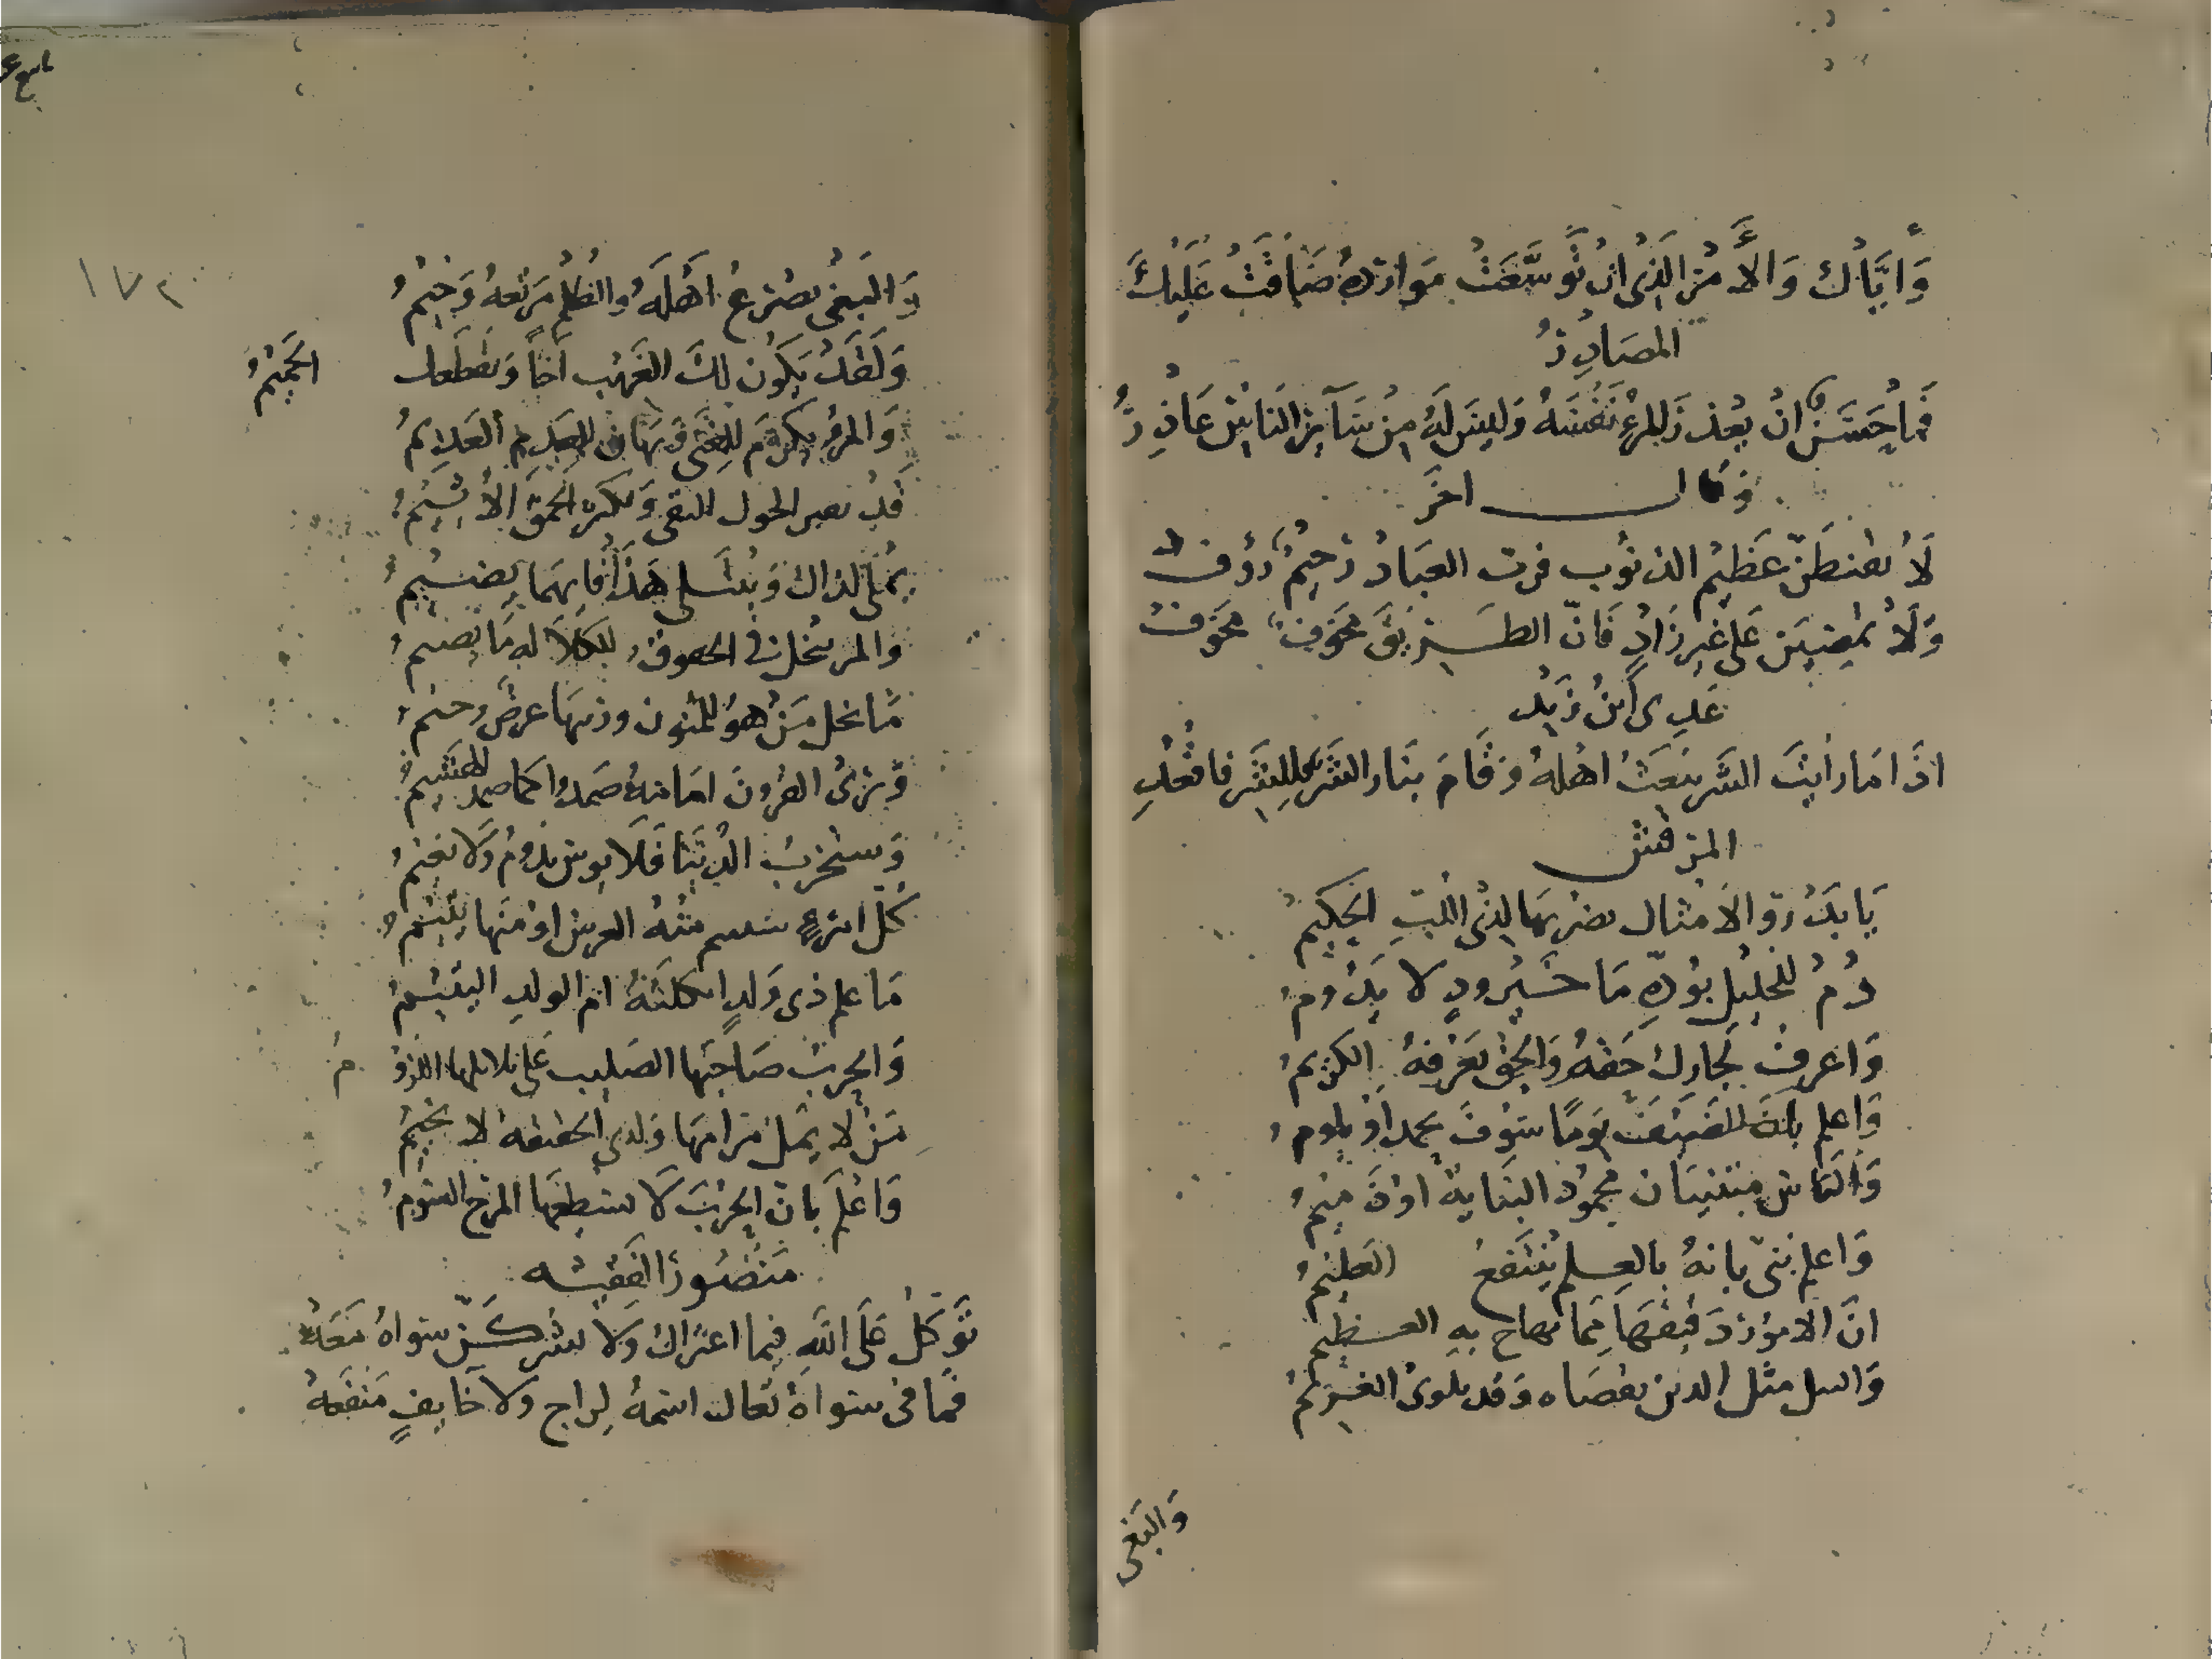 وَاِيَّاكَ وَالأَمْرَ الَّذِي اِنْ تَوَسَّعَتْ مَوَارِدُهُ ضَاقَتْ عَلَيْكَ
المصَادِرُ
فَمَا حَسَنٌ انْ يَعْذِرَ المرءُ نَفْسَهُ وَلَيْسَ لَهُ مِنْ سَآئِرِ النَاسِ عَاذِرُ
وَقال اخَر
لَا يقنطَنّ عَظِيمُ الذنوُب فرب العِبَادْ رَحِيمٌ رَؤُف
وَلَا تَمْضِيَن عَلَى غيرِ زَادٍ فَانّ الطَريقَ مَخوَف مَخوَف
عَدِى ابْنُ زَيْد
اذَا مَا رأيتَ الشَر يَبْعَثُ اهْلهُ وَقَامَ جناه الشَر للشَر فاقْعُدِ
المرقش
يَا بَدْرُ وَالأمثال يضربهَا لِذِى اللُبِّ الحَكِيمُ
دُمْ للخَلِيلِ بوُدّهِ مَا خَيْرُ ودٍ لا يَدُومُ
وَاعرِفْ لجارِك حَقهُ وَالحق يَعْرفهُ الكريمُ
وَاعلم بانَّ الضَيفَ يومًا سَوْفَ يحمد اوْ يلومُ
وَالنَاس مبتنيَان محموُدُ البنَاية اوْ ذَميمُ
وَاعلم بُنَىّ بانهُ بالعِلم يُنْتَفعُ العَلِيْمُ
انَّ الامُورَ دَقيقهَا مِمَا يهاج بهِ العظيم
وَالتبل مثل الدين يقضَاه وَقد يلوىُ الغَريمُ
وَالبَغى
١٧٢
وَالبَغْىُ يصْرَعُ اَهْلَهُ وَالظُلْمُ مَرْتعهُ وَخِيْمُ
وَلَقدْ يَكُون لكَ الغَرِيْب اَخًا وَيقْطَعك
الحَمِيْمُ
وَالمرْءُ يكرَمُ للغِنَى وَيهَان للعَدم العَدِيمُ
قَد يقتر الحول التقى وَيكثر الحَمِقُ الأثِيْمُ
يُمْلَى لذاك وَيُبْتَلى هَذَا فَايهمَا يَضِيْمُ
وَالمرء يبخل فى الحقوق للكلالة مَا يسيم
مَا بخل مَنْ هوَ للمنون وريبهَا غرضٌ رجيمُ
وَيَرَىُ القرُونَ امَامَهُ هَمَدوُا كما همد الهَشِيمُ
وَستخربُ الدُنيَا فَلَا بوس يَدُومُ وَلَا نعِيمُ
كُلّ امْرءٍ ستئيم مِنْهُ العرس اوْ مِنهَا يَئِيْمُ
مَا علم ذى وَلدٍ اثكلتهُ ام الولد اليَتِيْمُ
وَالحربُ صَاحِبُهَا الصَليب عَلى تلاتلها العَزُومُ
مَنْ لا يمَلُّ ضرامهَا وَلدى الحَقيقة لا يَخِيْمُ
وَاعْلَم بانَّ الحَرْبَ لَا يستطيعهَا المرحُ السَؤومُ
مَنصُورُ الفَقيه
تَوَكّلْ عَلَى اللَّهِ فيما اعتراكَ وَلَا تشركنّ سواهُ مَعَهْ
فمَا فى سوَاهُ تعَال اسمهُ لِراج وَلا خايفٍ مَنفعَهْ